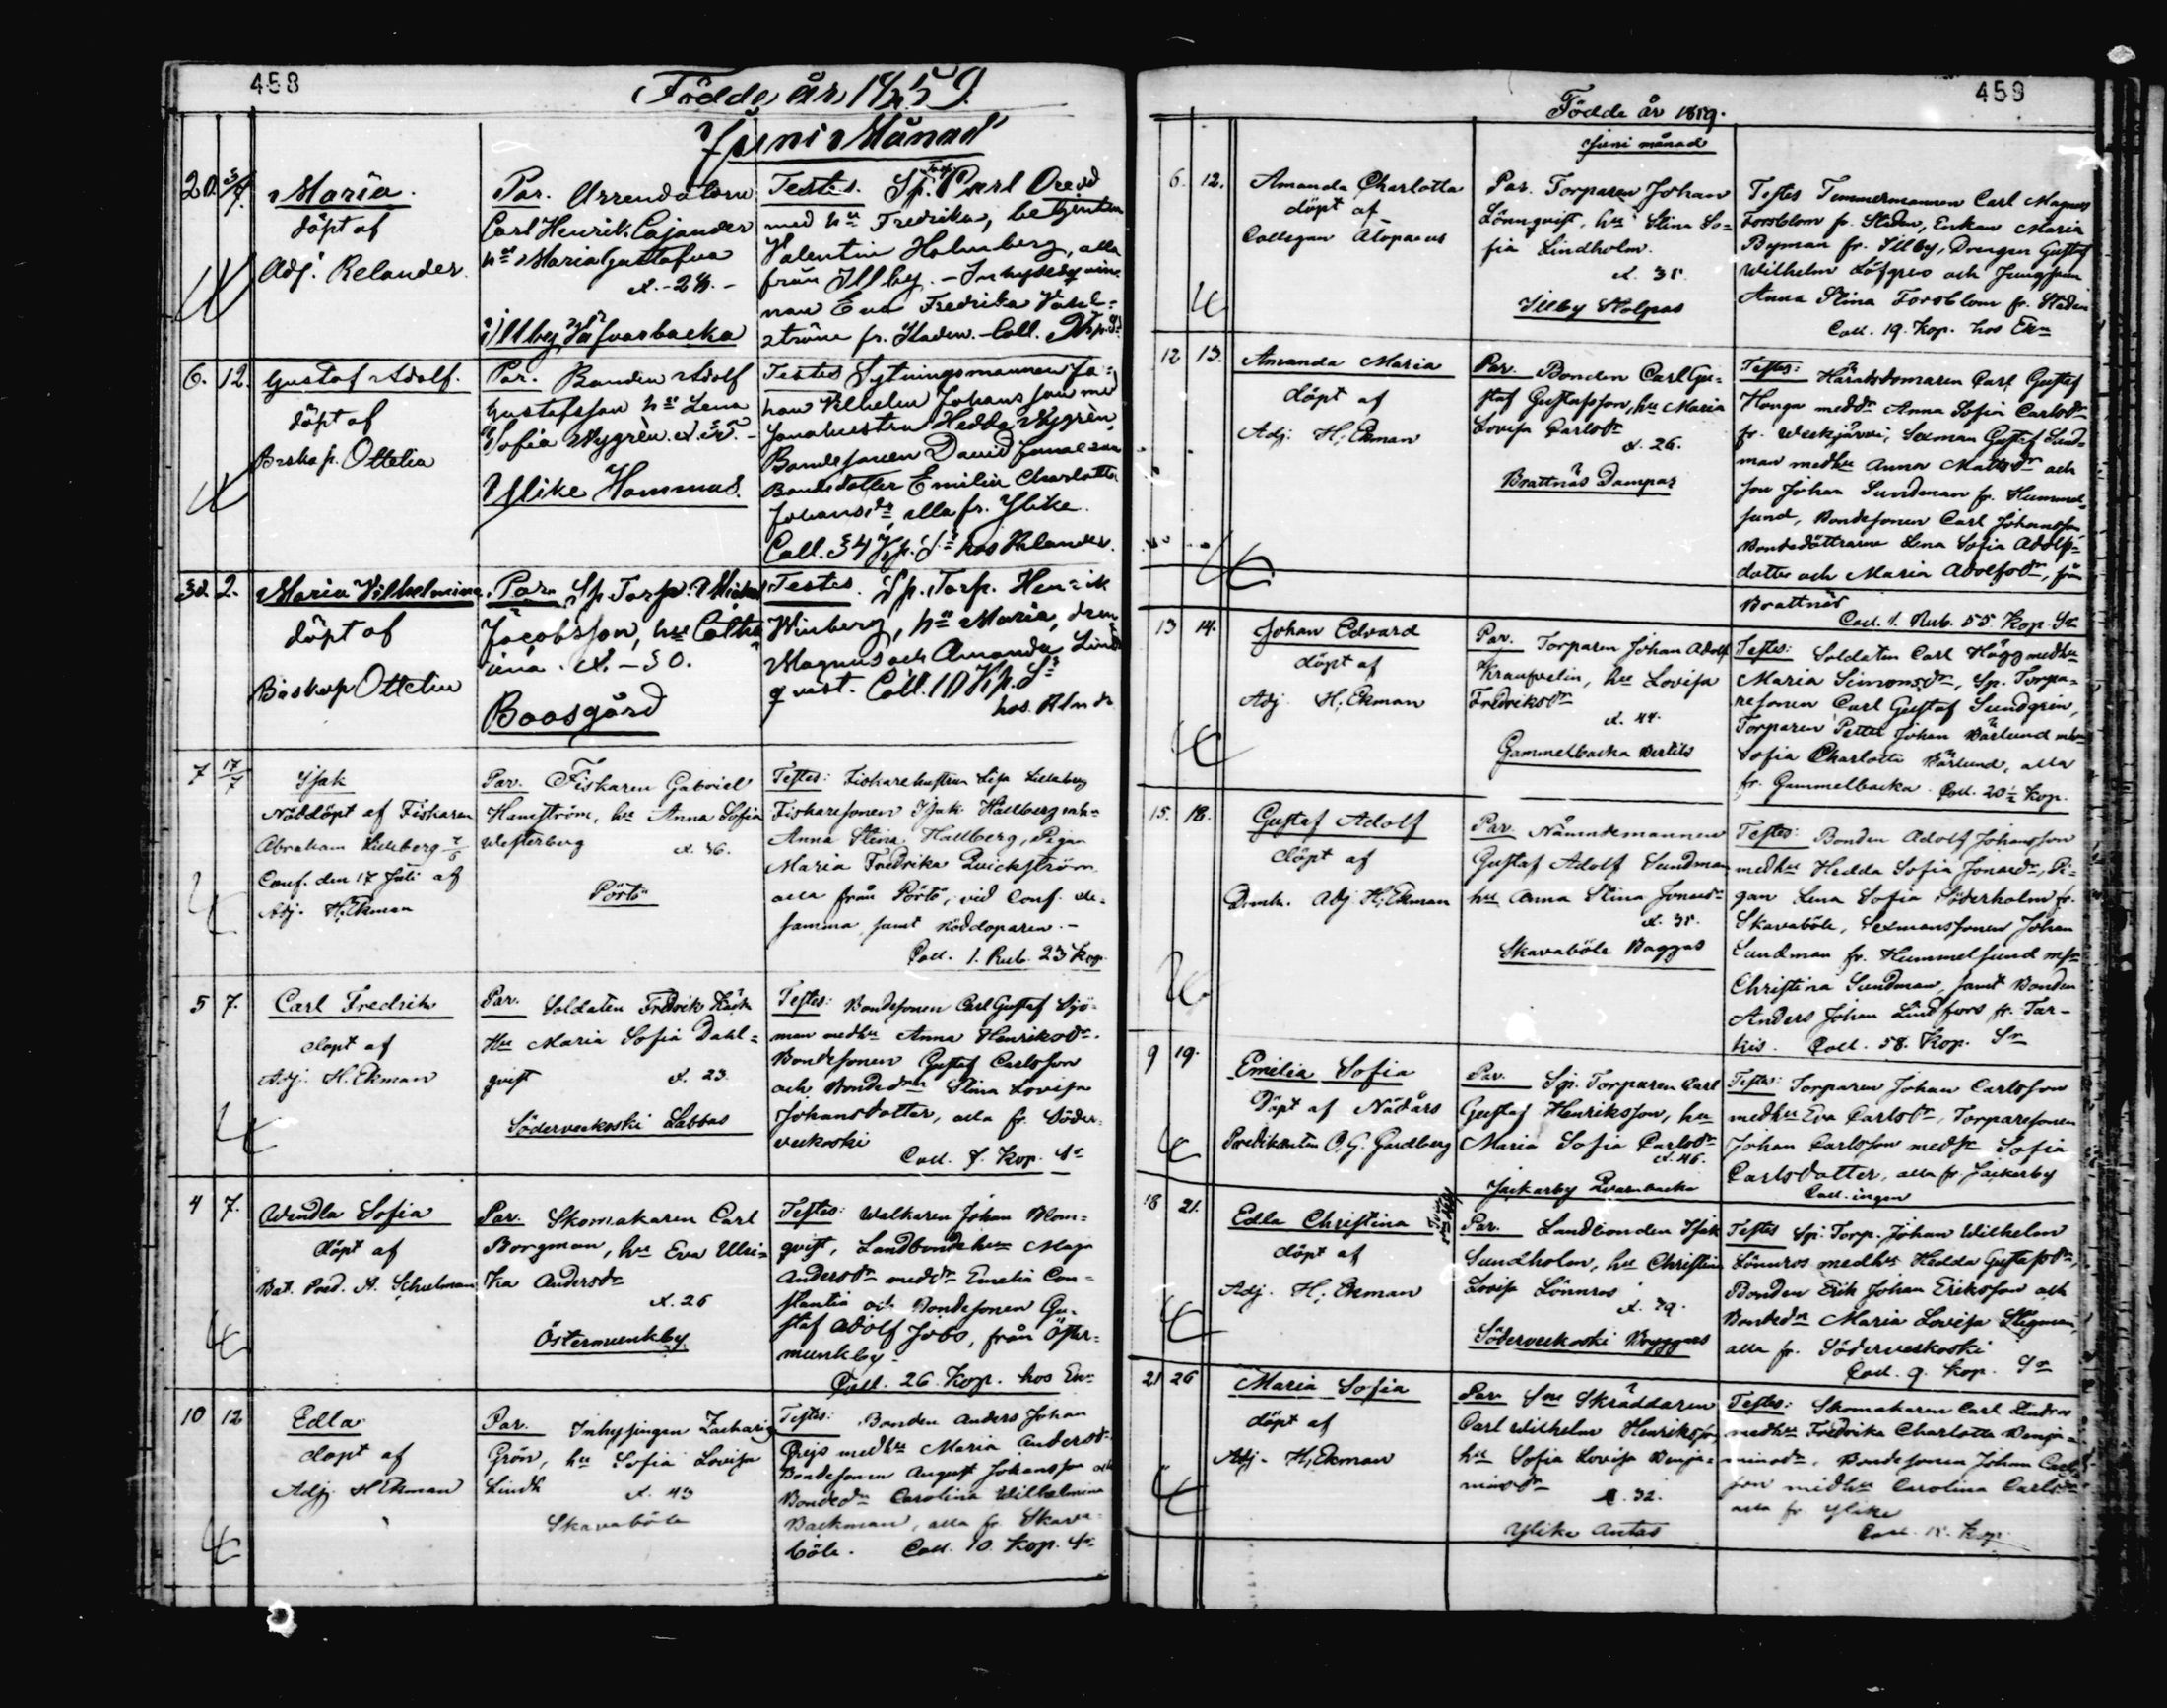 458
Födde år 1859.
Juni Månad
20. 3/4.
Maria.
döpt af
Adj. Relander.
Par. Arrendatorn
Carl Henrik Cajander
hu Maria Gustafva
x. - 28. -
Illby
Testes. Sp. Torp. Carl
med hu Fredrika, betjenten
Valentin Holmberg, alla
från Illby. - Inhyses
nan Eva Fredrika
ström fr. Staden. - Coll.
6. 12.
Gustaf Adolf.
döpt af
Biskop. Ottelin
Par. Bonden Adolf
Gustafsson hu Lena
Sofia Nygrèn.
Ylike Hommas.
Testes Sytningsmannen Jo-
han Vilhelm Johansson med
Hedda Nygrèn,
Bondesonen David
Bondedotter Emilia Charlotta
Johansdr, alla fr. Ylike.
Coll. 34 Kp. Sr hos Relander.
30. 2.
Maria Vilhelmina
döpt af
Biskop Ottelin
Par. Sp. Torp. Michel
Jacobsson, hu Catha
rina. x. - 30.
Boosgård
Testes. Sp. Torp. Henrik
Winberg, hu Maria, dren
Magnus och Amanda Lind
qvist. Coll. 10 Kp. Sr
hos Relndr
7 17/7
Isak
Nöddöpt af Fiskaren
Abraham Lillberg 7/6
Conf. den 17 Juli af
Adj. H. Ekman
Par. Fiskaren Gabriel
Hameström, hu Anna Sofia
Westerberg x. 36.
Pörtö
Testes: Fiskarehustrun Lisa Lillberg
Fiskaresonen Isak Hallberg
Anna Stina Hallberg, Pigan
Maria Fredrika Quickström
alla från Pörtö, vid Conf. de-
samma, samt nöddoparen. -
Coll. 1. Rub. 23 Kop.
5 7.
Carl Fredrik
döpt af
Adj. H. Ekman
Par. Soldaten Fredrik
Hu Maria Sofia Dahl-
qvist x. 23.
Söderveckoski Labbas
Testes: Bondesonen Carl Gustaf Sjö-
man medhu Anna Henriksdr.
Bondesonen Gustaf Carlsson
och Bondedn Stina Lovisa
Johansdotter, alla fr. Söder-
veckoski
Coll. 7. Kop. Sr
4 7.
Wendla Sofia
döpt af
Bat. Pred. A. Schulman
Par. Skomakaren Carl
Borgman, hu Eva Ulri-
ka Andersdr
x. 26
Östermunkby
Testes: Walkaren Johan Blom-
qvist, Landbondehun Maja
Andersdr meddr Emelia Con-
stantia och Bondesonen Gu-
staf Adolf Jobs, från Öster-
munkby -
Coll. 26. Kop. hos En
10 12
Edla
döpt af
Adj. H. Ekman
Par. Inhysingen Zacharis
Grön, hu Sofia Lovisa
Lindh x. 43
Skavaböle
Testes: Bonden Anders Johan
Grejs medhu Maria Andersdr
Bondesonen August Johansson och
Bondedn Carolina Wilhelmina
Backman, alla fr. Skava-
böle. Coll. 10. Kop. Sr
459
Födde år 1859.
Juni månad
6. 12.
Amanda Charlotta
döpt af
Collegan Alopaeus
Par. Torparen Johan
Lönnqvist, hu Stina So-
fia Lindholm.
x. 35.
Illby Stolpas
Testes Timmermannen Carl Magnus
Forsblom fr. Staden, Enkan Maria
Byman fr. Illby, Drengen Gustaf
Wilhelm Löfgren och Jungfrun
Anna Stina Forsblom fr. Staden
Coll. 19. Kop. hos En
12 13.
Amanda Maria
döpt af
Adj. H. Ekman
Par. Bonden Carl Gu-
staf Gustafsson, hu Maria
Lovisa Carlsdr
x. 26.
Brattnäs Dampas
Testes: Häradsdomaren Carl Gustaf
Honga meddr Anna Sofia Carlsdr
fr. Weckjärvi, Sexman Gustaf Sund-
man medhu Anna Mattsdr och
son Johan Sundman fr. Hummel-
sund, Bondesonen Carl Johansson
Bondedöttrarne Lena Sofia Adolfs-
dotter och Maria Adolfsdr, från
Brattnäs
Coll. 1. Rub. 55. Kop. Sr
13 14.
Johan Edvard
döpt af
Adj. H. Ekman
Par. Torparen Johan Adolf
Kraufvelin, hu Lovisa
Fredriksdr
x. 44.
Gammelbacka Bertils
Testes: Soldaten Carl Hägg medhu
Maria Simonsdr, Sp. Torpa-
resonen Carl Gustaf Sundgrèn,
Torparen Petter Johan Barlund
Sofia Charlotta Barlund, alla
fr. Gammelbacka. Coll. 20 1/2 Kop.
15. 18.
Gustaf Adolf
döpt af
Adj. H. Ekman
Par. Nämndemannen
Gustaf Adolf Sundman
hu Anna Stina Jonasdr
x. 35.
Skavaböle Baggas
Testes: Bonden Adolf Johansson
medhu Hedda Sofia Jonasdr, Pi-
gan Lena Sofia Söderholm fr.
Skavaböle, Sexmanssonen Johan
Sundman fr. Hummelsund
Christina Sundman, samt Bonden
Anders Johan Lindfors fr. Tar-
kis. Coll. 58. Kop. Sr
9 19.
Emilia Sofia
Döpt af Nådårs
Predikanten O. G. Gardberg
Par. Sp. Torparen Carl
Gustaf Henriksson, hu
Maria Sofia Carlsdr
x. 46.
Jackarby Qvarnbacka
Testes: Torparen Johan Carlsson
medhu Eva Carlsdr, Torparesonen
Johan Carlsson medsr Sofia
Carlsdotter, alla fr. Jackarby
Coll. ingen
18 21.
Edla Christina
döpt af
Adj. H. Ekman
Par. Landbonden Isak
Sundholm, hu Christina
Lovisa Lönnros
x. 39.
Söderveckoski Bryggars
Testes Sp. Torp. Johan Wilhelm
Lönnros medhu Hedda Gustafsdr,
Bonden Erik Johan Eriksson och
Bondedn Maria Lovisa Stigman,
alla fr. Söderveckoski
Coll. 9. Kop. Sr
21 26
Maria Sofia
döpt af
Adj. H. Ekman
Par. Sne Skräddaren
Carl Wilhelm Henriksson,
hu Sofia Lovisa Benja-
minsdr
x. 32.
Ylike Antas
Testes: Skomakaren Carl Lindros
medhu Fredrika Charlotta Benja-
minsdr, Bondesonen Johan Carls-
son medhu Carolina Carlsdr
alla fr. Ylike
Coll. 15. Kop.